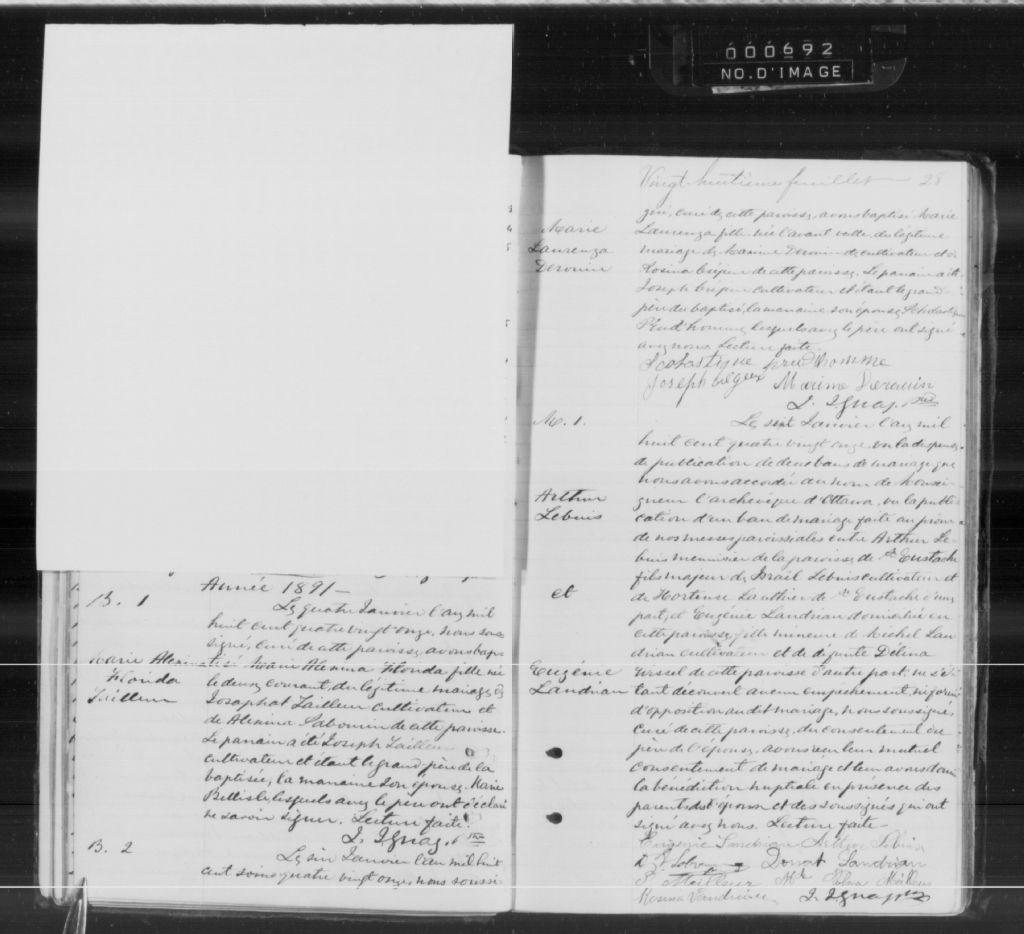 000692
NO. D'IMAGE
Année 1891 —
B. 1
Le quatre Janvier l'an mil
huit cent quatre vingt onze, nous sous-
signé, curé de cette paroisse, avons bap-
Marie Alexina
Florida
tisé Marie Alexina Florida fille née
le deux courant, du légitime mariage de
Josaphat cultivateur et
de Alexina de cette paroisse.
Le parrain a été Joseph
cultivateur et étant le grand-père de la
baptisée, la marraine son épouse, Marie
lesquels avec le père ont déclaré
ne savoir signer. Lecture faite.
J. Ignace Ptre
B. 2
Le six Janvier l'an mil huit
cent quatre vingt onze, nous soussi-
Vingt huitième feuillet — 28
Marie
Laurenza
Derouin
gné, curé de cette paroisse, avons baptisé Marie
Laurenza fille née l'avant veille, du légitime
mariage de Maxime Derouin cultivateur et de
Rosina de cette paroisse. Le parrain a été
Joseph cultivateur et étant le grand-
père du baptisé, la marraine son épouse, Scholastique
Prud'homme lesquels avec le père ont signé
avec nous. Lecture faite.
Scolastique prud'homme
Joseph Maxime Derouin
J. Ignace Ptre
M. 1.
Le sept Janvier l'an mil
huit cent quatre vingt onze, vu la dispense
de publication de deux bans de mariage que
nous avons accordée au nom de Monsei-
gneur l'archevêque d'Ottawa, vu la publi-
Arthur
Lebuis
cation d'un ban de mariage faite au prône
de nos messes paroissiales entre Arthur Le-
buis meunier de la paroisse de St Eustache
fils majeur de Israël Lebuis cultivateur et
et
de Hortense Lauthier de St Eustache d'une
part, et Eugénie Landrian domiciliée en
cette paroisse, fille mineure de Michel Lan-
drian cultivateur et de défunte Delina
Eugénie
Landrian
de cette paroisse d'autre part; ne s'é-
tant découvert aucun empêchement, ni formé
d'opposition au dit mariage, nous soussigné,
curé de cette paroisse, du consentement du
père de l'épouse, avons reçu leur mutuel
consentement de mariage et leur avons donné
la bénédiction nuptiale en présence des
parents et des soussignés qui ont
signé avec nous. Lecture faite —
Eugénie Landrian Arthur Lebuis
Donat Landrian
Rosina Landrian J. Ignace Ptre